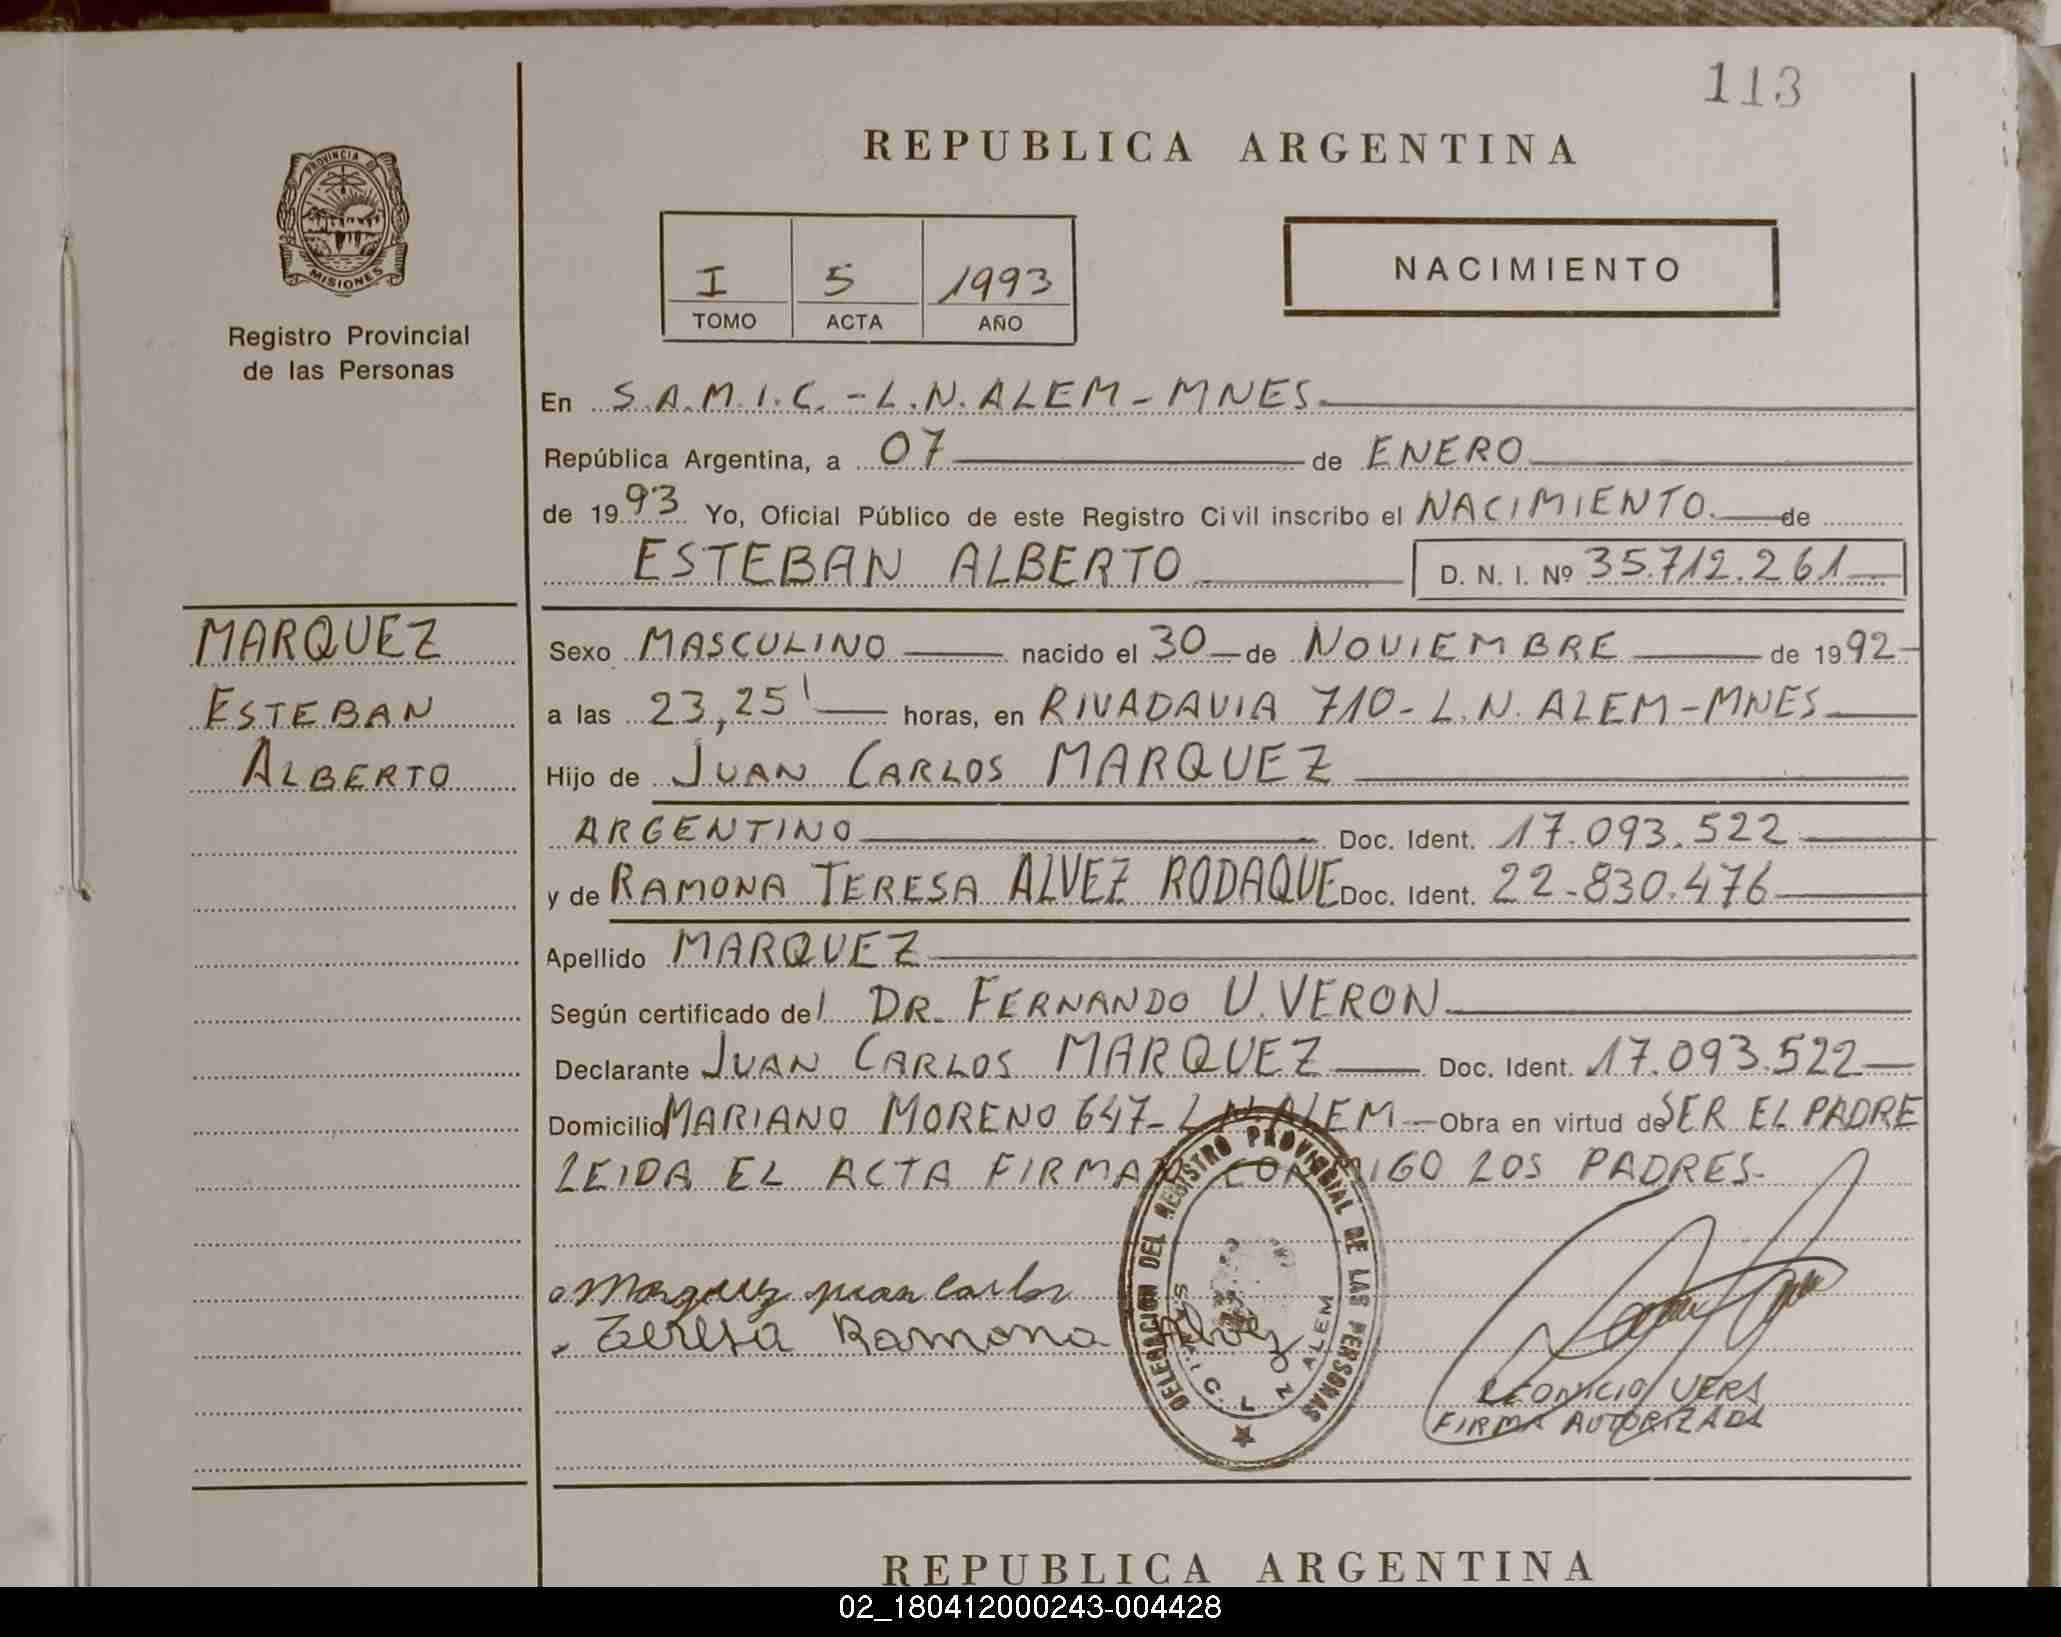 113
REPUBLICA ARGENTINA
PROVINCIA D
MISIONES
Registro Provincial
de las Personas
I 5 1993
TOMO ACTA AÑO
NACIMIENTO
En S.A.M.I.C. - L.N. ALEM - MNES
República Argentina, a 07 de ENERO
de 1993 Yo, Oficial Público de este Registro Civil inscribo el NACIMIENTO. de
ESTEBAN ALBERTO D. N. I. Nº 35.712.261
MARQUEZ
ESTEBAN
ALBERTO
Sexo MASCULINO nacido el 30 de NOVIEMBRE de 1992
a las 23,25' horas, en RIVADAVIA 710 - L.N. ALEM - MNES
Hijo de JUAN CARLOS MARQUEZ
ARGENTINO Doc. Ident. 17.093.522
y de RAMONA TERESA ALVEZ RODAQUE Doc. Ident. 22-830.476
Apellido MARQUEZ
Según certificado del DR. FERNANDO U. VERON
Declarante JUAN CARLOS MARQUEZ Doc. Ident. 17.093.522
Domicilio MARIANO MORENO 647- L.N. ALEM Obra en virtud de SER EL PADRE
LEIDA EL ACTA FIRMAN CONMIGO LOS PADRES-
Marquez juan Carlos
Teresa Ramona Alvez
DELEGACION DEL REGISTRO PROVINCIAL DE LAS PERSONAS
S.A.M.I.C. L N ALEM
LEONICIO VERA
FIRMA AUTORIZADA
REPUBLICA ARGENTINA
02_180412000243-004428